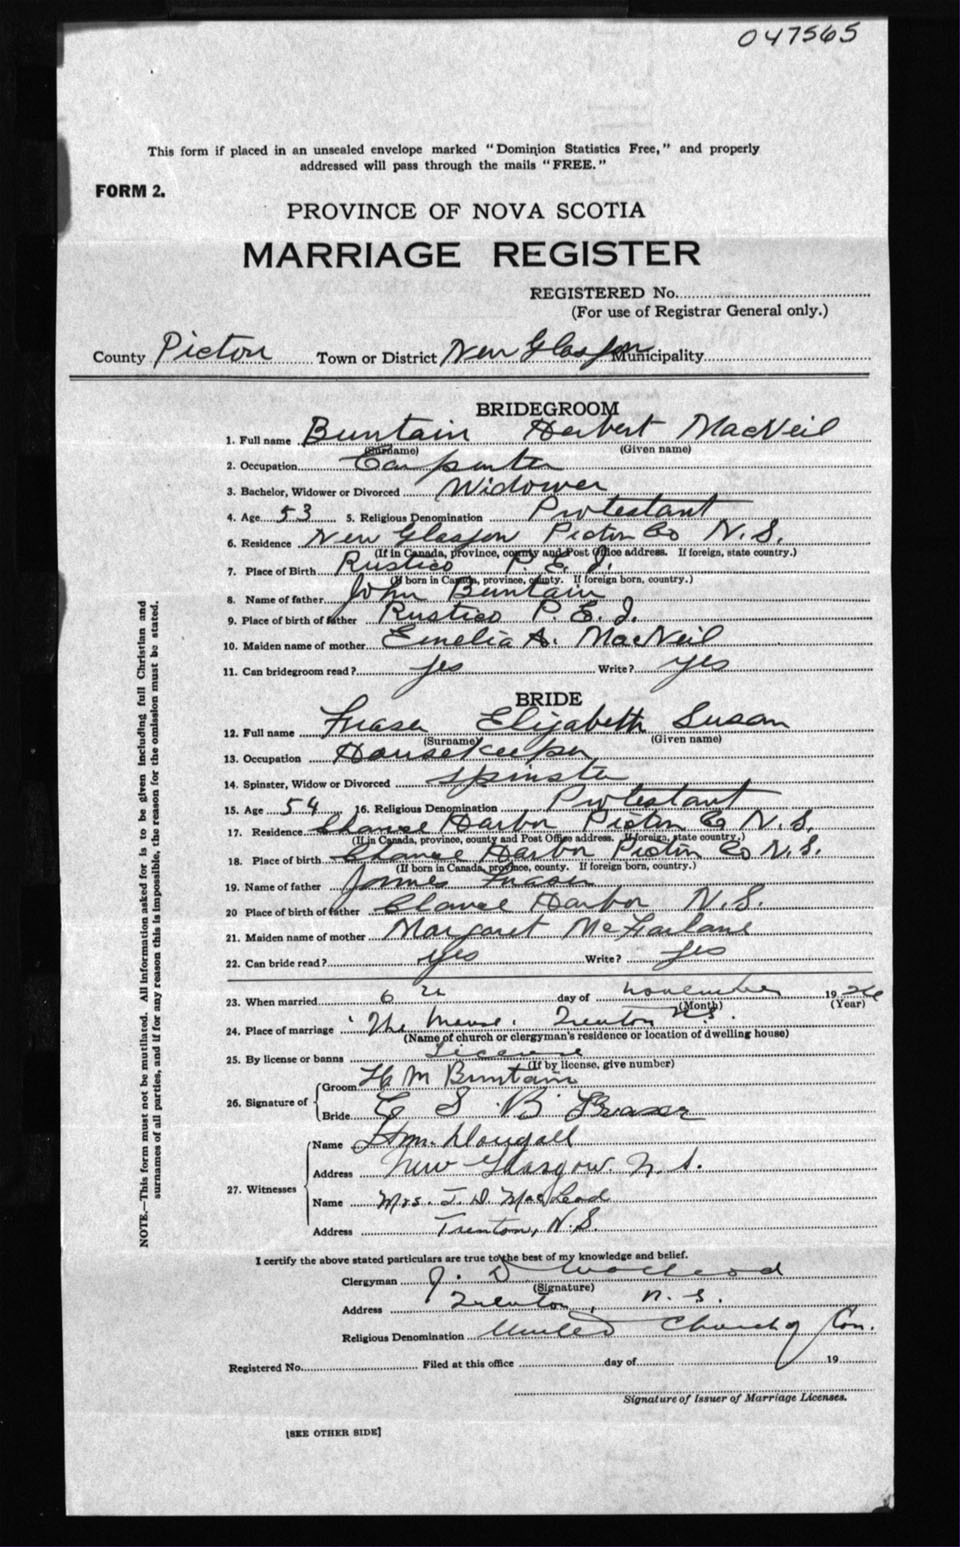 047565
This form if placed in an unsealed envelope marked "Dominion Statistics Free," and properly
addressed will pass through the mails "FREE."
FORM 2.
PROVINCE OF NOVA SCOTIA
MARRIAGE REGISTER
REGISTERED No.
(For use of Registrar General only.)
County Pictou Town or District New Glasgow Municipality
BRIDEGROOM
1. Full name Buntain Herbert MacNeil
(Surname) (Given name)
2. Occupation Carpenter
3. Bachelor, Widower or Divorced Widower
4. Age 53 5. Religious Denomination Protestant
6. Residence New Glasgow Pictou Co N.S.
(If in Canada, province, county and Post Office address. If foreign, state country.)
7. Place of Birth Rustico P.E.I.
(If born in Canada, province, county. If foreign born, country.)
8. Name of father John Buntain
9. Place of birth of father Rustico P.E.I.
10. Maiden name of mother Emelia A. MacNeil
11. Can bridegroom read? yes Write? yes
BRIDE
12. Full name Fraser Elizabeth Susan
(Surname) (Given name)
13. Occupation Housekeeper
14. Spinster, Widow or Divorced Spinster
15. Age 54 16. Religious Denomination Protestant
17. Residence Chance Harbor Pictou Co N.S.
(If in Canada, province, county and Post Office address. If foreign, state country.)
18. Place of birth Chance Harbor Pictou Co N.S.
(If born in Canada, province, county. If foreign born, country.)
19. Name of father James Fraser
20 Place of birth of father Chance Harbor N.S.
21. Maiden name of mother Margaret McFarlane
22. Can bride read? yes Write? yes
23. When married 6 day of november 1926
(Month) (Year)
24. Place of marriage The Manse. Trenton N.S.
(Name of church or clergyman's residence or location of dwelling house)
25. By license or banns License
(If by license, give number)
26. Signature of
Groom H M Buntain
Bride E S B Fraser
27. Witnesses
Name Dougall
Address New Glasgow. N.S.
Name Mrs. J. D. MacLeod
Address Trenton, N.S.
I certify the above stated particulars are true to the best of my knowledge and belief.
Clergyman J. D MacLeod
(Signature)
Address Trenton, N.S.
Religious Denomination United Church of Can.
Registered No. Filed at this office day of 19
Signature of Issuer of Marriage Licenses.
[SEE OTHER SIDE]
NOTE.—This form must not be mutilated. All information asked for is to be given including full Christian and
surnames of all parties, and if for any reason this is impossible, the reason for the omission must be stated.